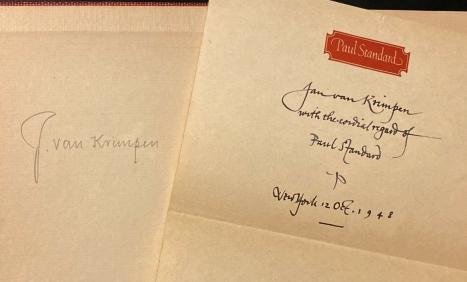 J. van Krimpen
Paul Standard
Jan van Krimpen
with the cordial regard of
Paul Standard
New York 12 Oct. 1948